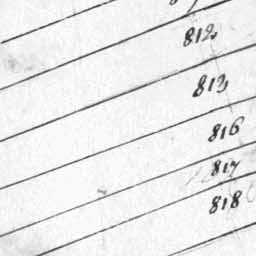 812,
813,
816
817
818